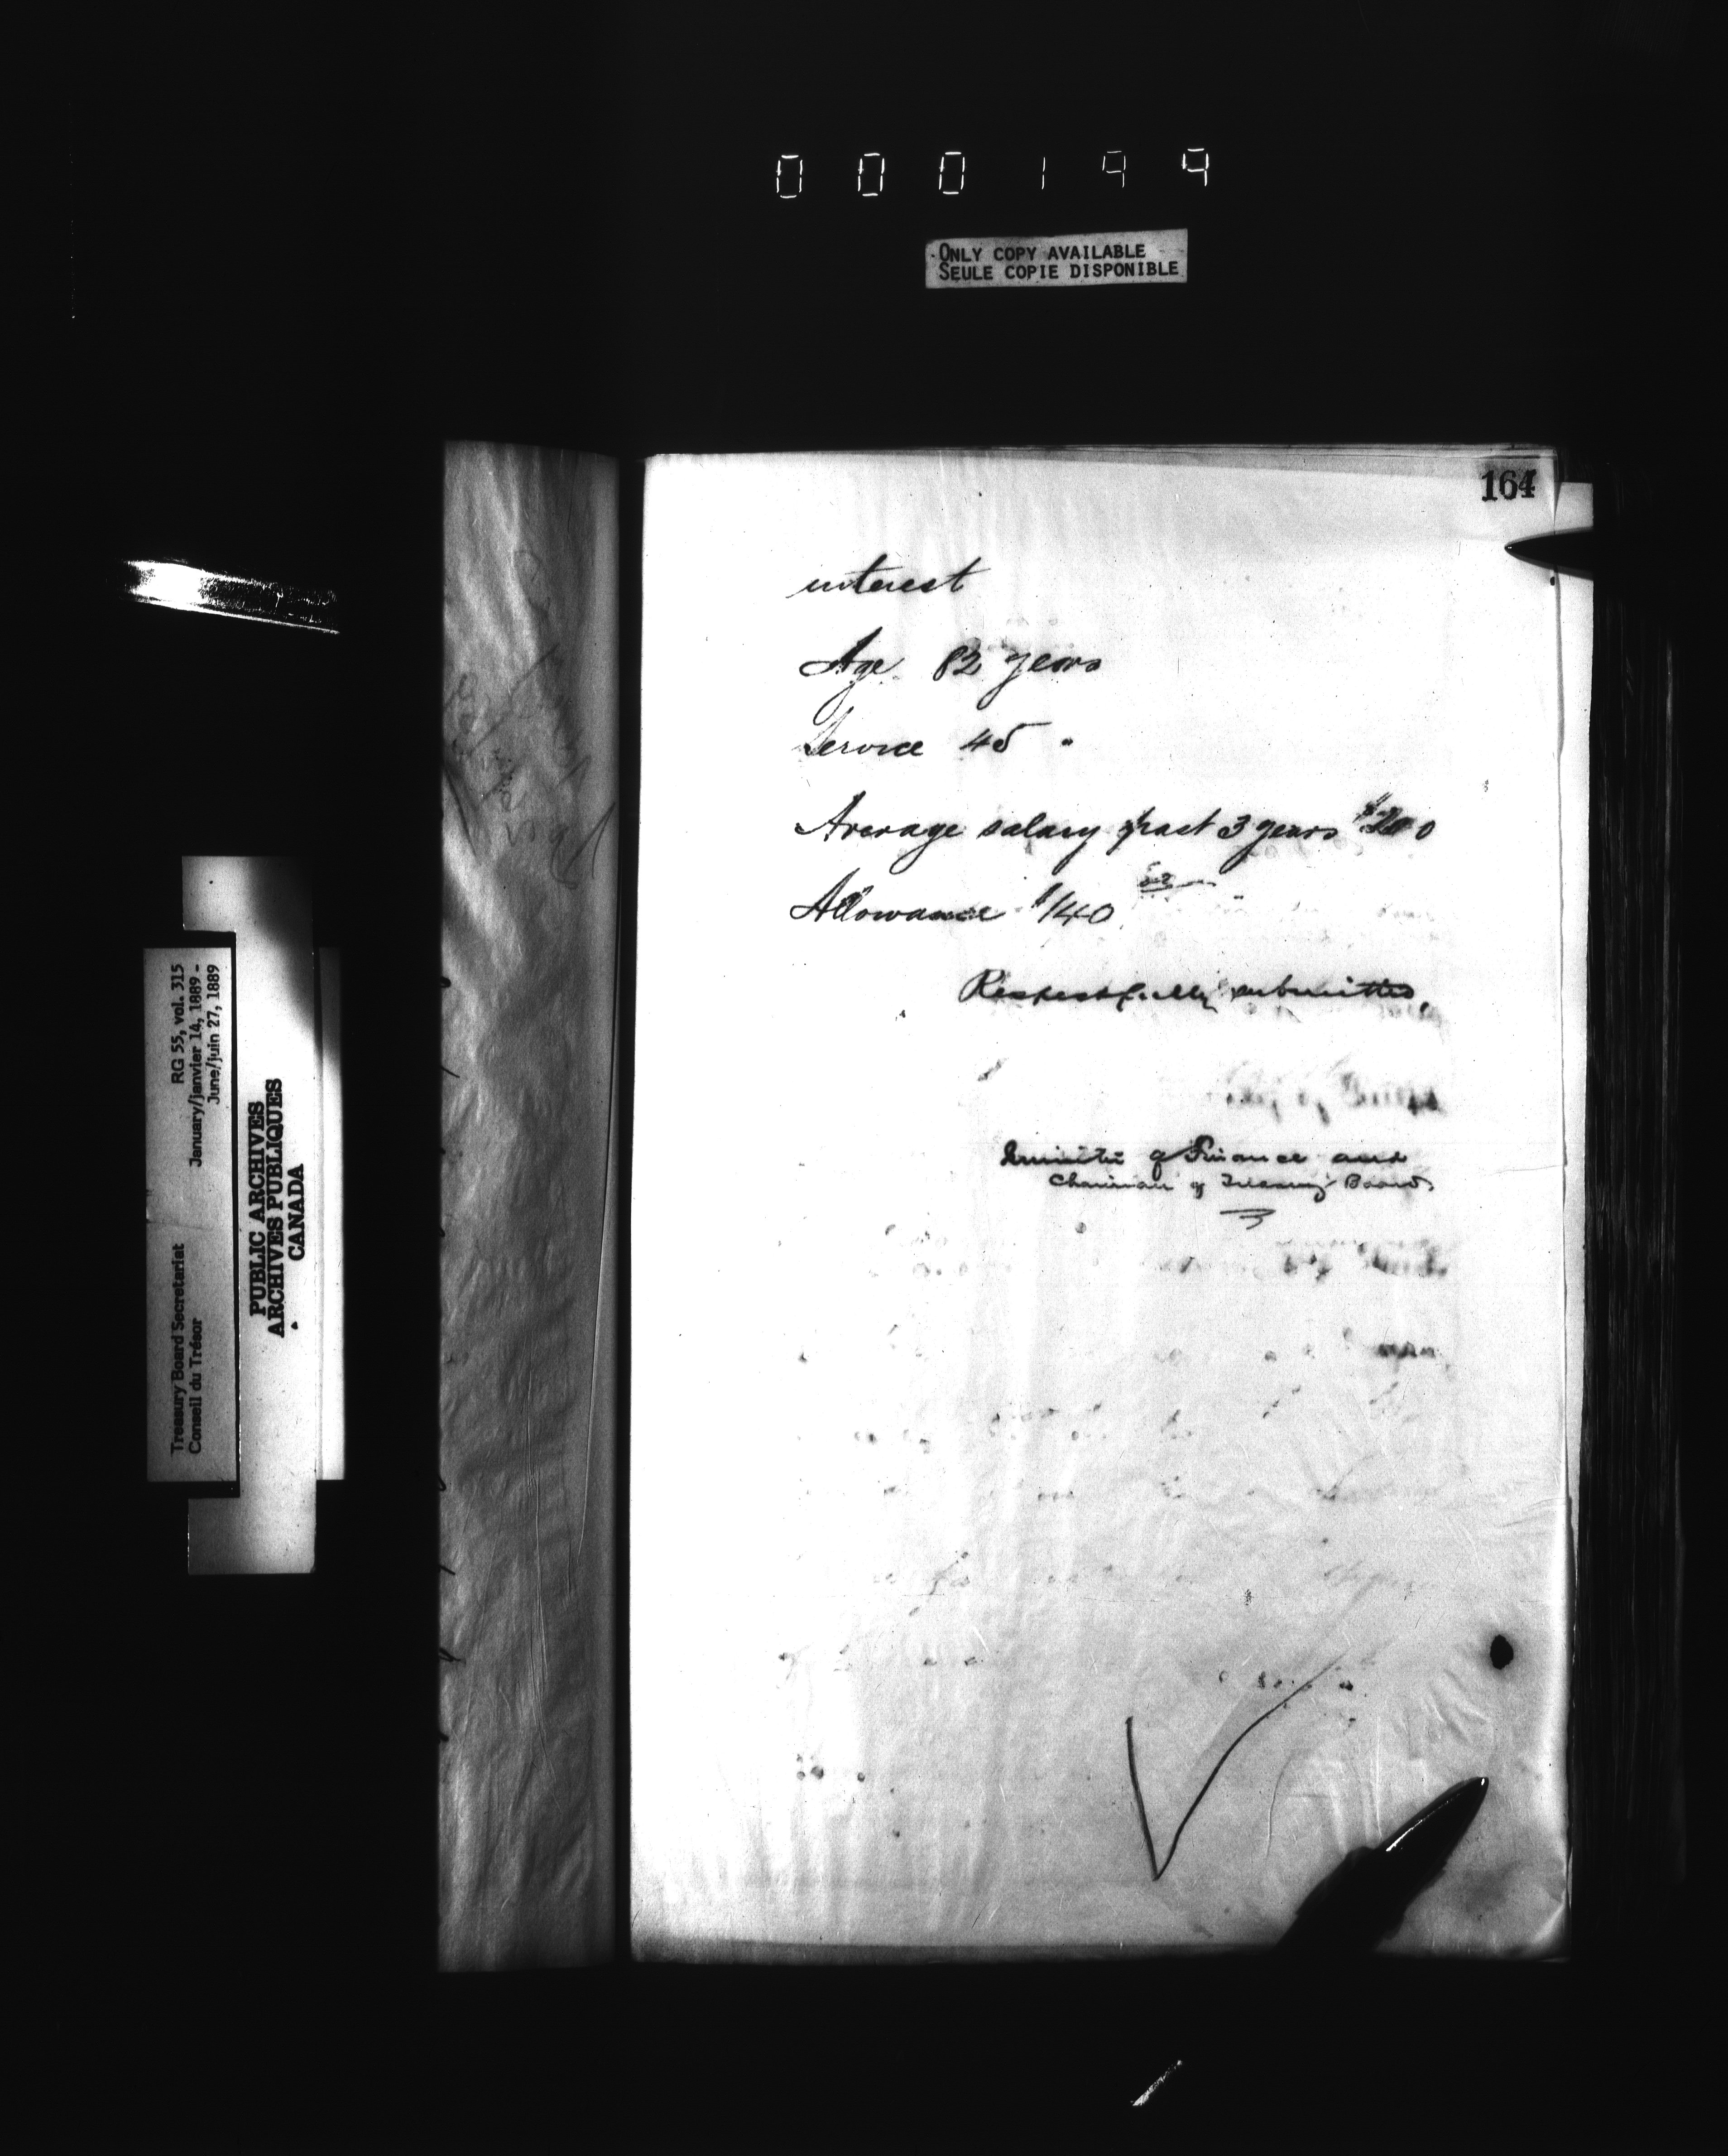 000199
ONLY COPY AVAILABLE
SEULE COPIE DISPONIBLE
164
interest
Age 82 years
Service 45 "
Average salary past 3 years $200
Allowance $140
Respectfully submitted,
Minister of Finance and
Chairman of Treasury Board
RG 55, vol. 315
January/janvier 14, 1889 -
June/juin 27, 1889
Treasury Board Secretariat
Conseil du Trésor
PUBLIC ARCHIVES
ARCHIVES PUBLIQUES
CANADA